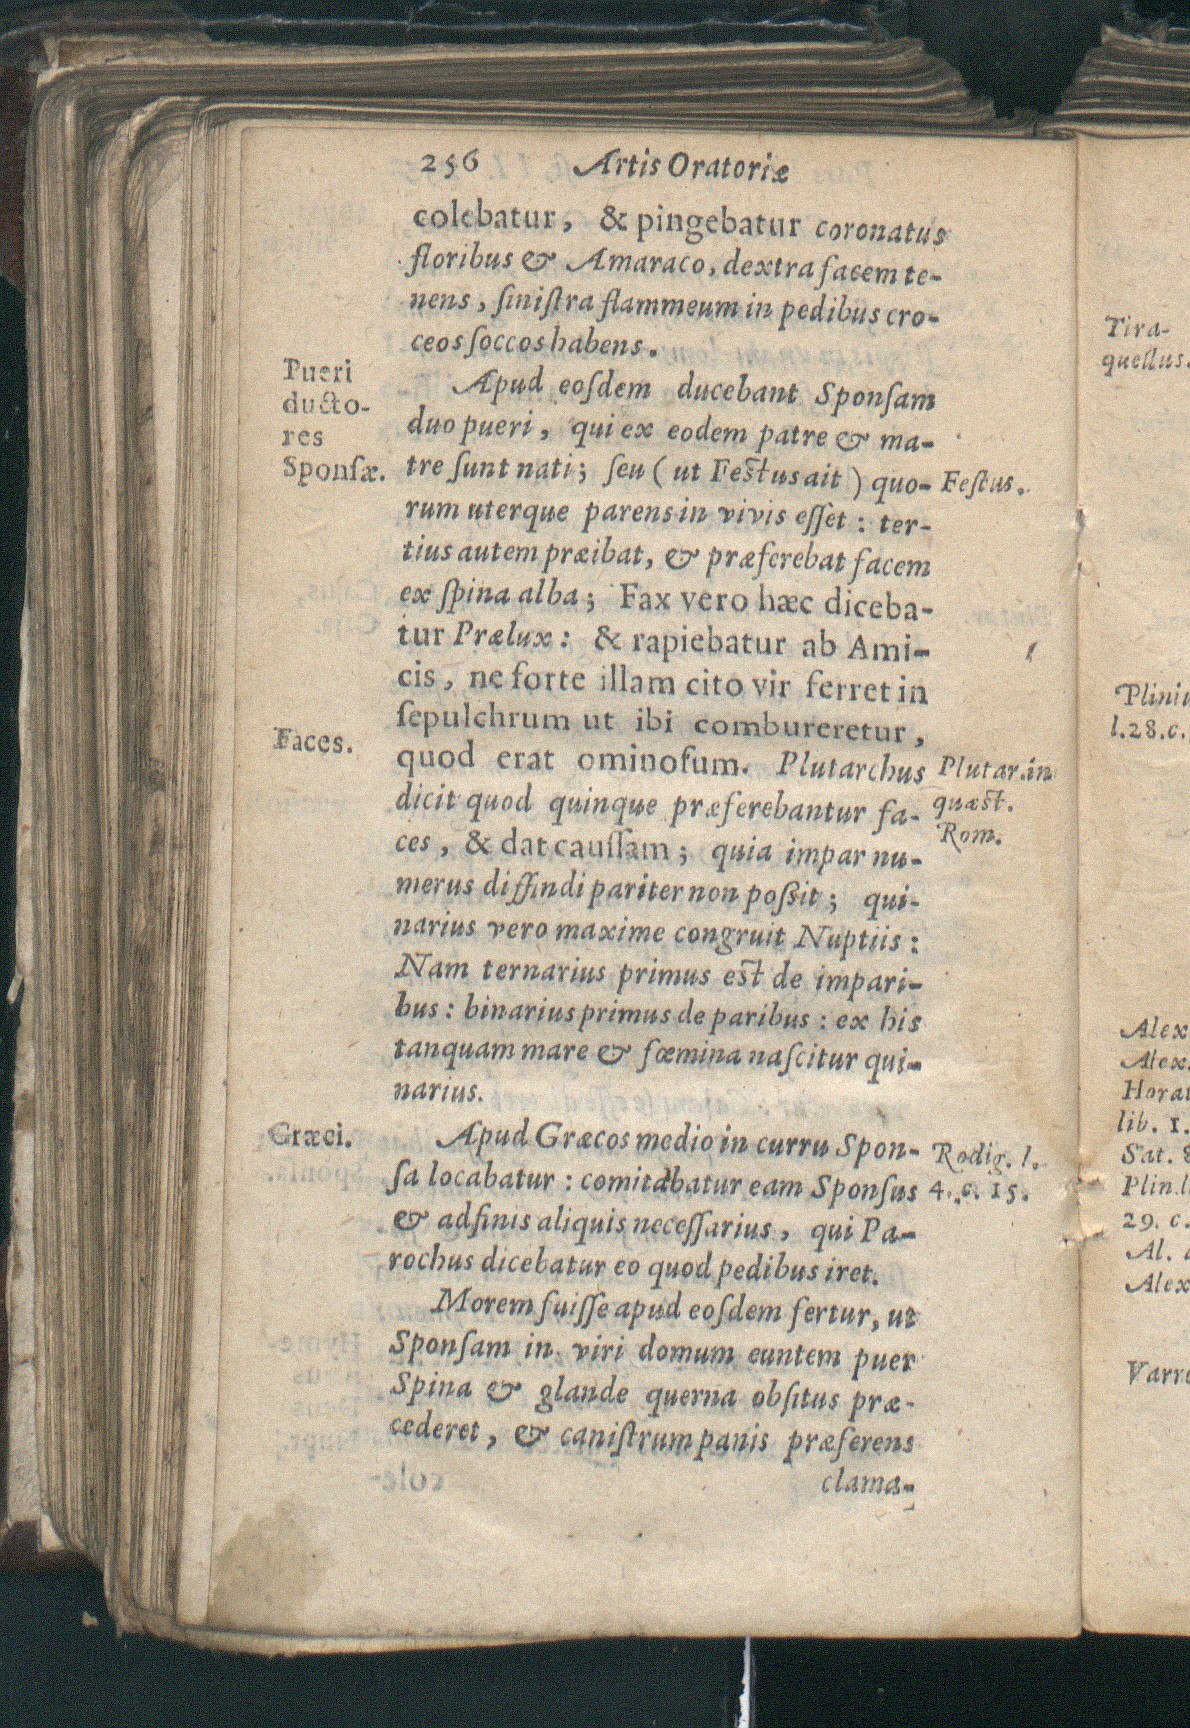 256 Artis Oratoriæ
colebatur, & pingebatur coronatus
floribus & Amaraco, dextra facem te-
nens, ſiniſtra flammeum in pedibus cro-
ceos ſoccos habens.
Pueri
ducto-
res
Sponſæ.
Apud eoſdem ducebant Sponſam
duo pueri, qui ex eodem patre & ma-
tre ſunt nati; ſeu (ut Feſtus ait) quo-
Feſtus.
rum uterque parens in vivis eſſet: ter-
tius autem præibat, & præferebat facem
ex ſpina alba; Fax vero hæc diceba-
tur Prælux: & rapiebatur ab Ami-
cis, ne forte illam cito vir ferret in
ſepulchrum ut ibi combureretur,
Faces.
quod erat ominoſum. Plutarchus
Plutar. in
quæſt.
Rom.
dicit quod quinque præferebantur fa-
ces, & dat cauſſam; quia impar nu-
merus diffindi pariter non poſſit; qui-
narius vero maxime congruit Nuptiis:
Nam ternarius primus eſt de impari-
bus: binarius primus de paribus: ex his
tanquam mare & fœmina naſcitur qui-
narius.
Græci.
Apud Græcos medio in curru Spon-
Rodig. l.
4. c. 15.
ſa locabatur: comitabatur eam Sponſus
& adfinis aliquis neceſſarius, qui Pa-
rochus dicebatur eo quod pedibus iret.
Morem fuiſſe apud eoſdem fertur, ut
Sponſam in viri domum euntem puer
Spina & glande querna obſitus præ-
cederet, & caniſtrum panis præferens
clama-
Tira-
quellus.
Pliniu
l. 28. c.
Alex
Alex.
Horat
lib. 1.
Sat. 8
Plin. l
29. c.
Al.
Alex
Varro